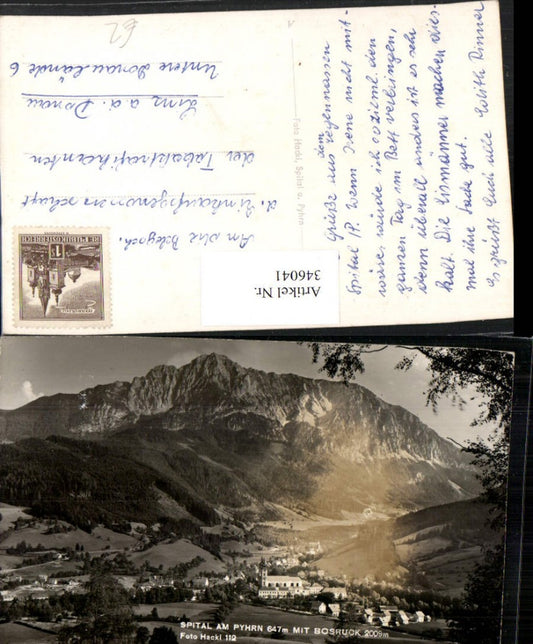 62
Grüße aus dem regennassen
Spital /P. Wenn Irene nicht mit-
wäre, würde ich so ziemli. den
ganzen Tag im Bett verbringen,
denn überall anders ist es sehr
kalt. Die Eismänner machen dies-
mal ihre Sache gut.
Es grüßt Euch alle Edith Dinner
Foto Hackl, Spital a. Pyhrn
REPUBLIK ÖSTERREICH
1
An die Belegsch.
d. Einkaufsgenossenschaft
der Tabaktrafikanten
Linz a. d. Donau
Untere Donaulände 6
Artikel Nr.
346041
SPITAL AM PYHRN 647m MIT BOSRUCK 2009m
Foto Hackl 119